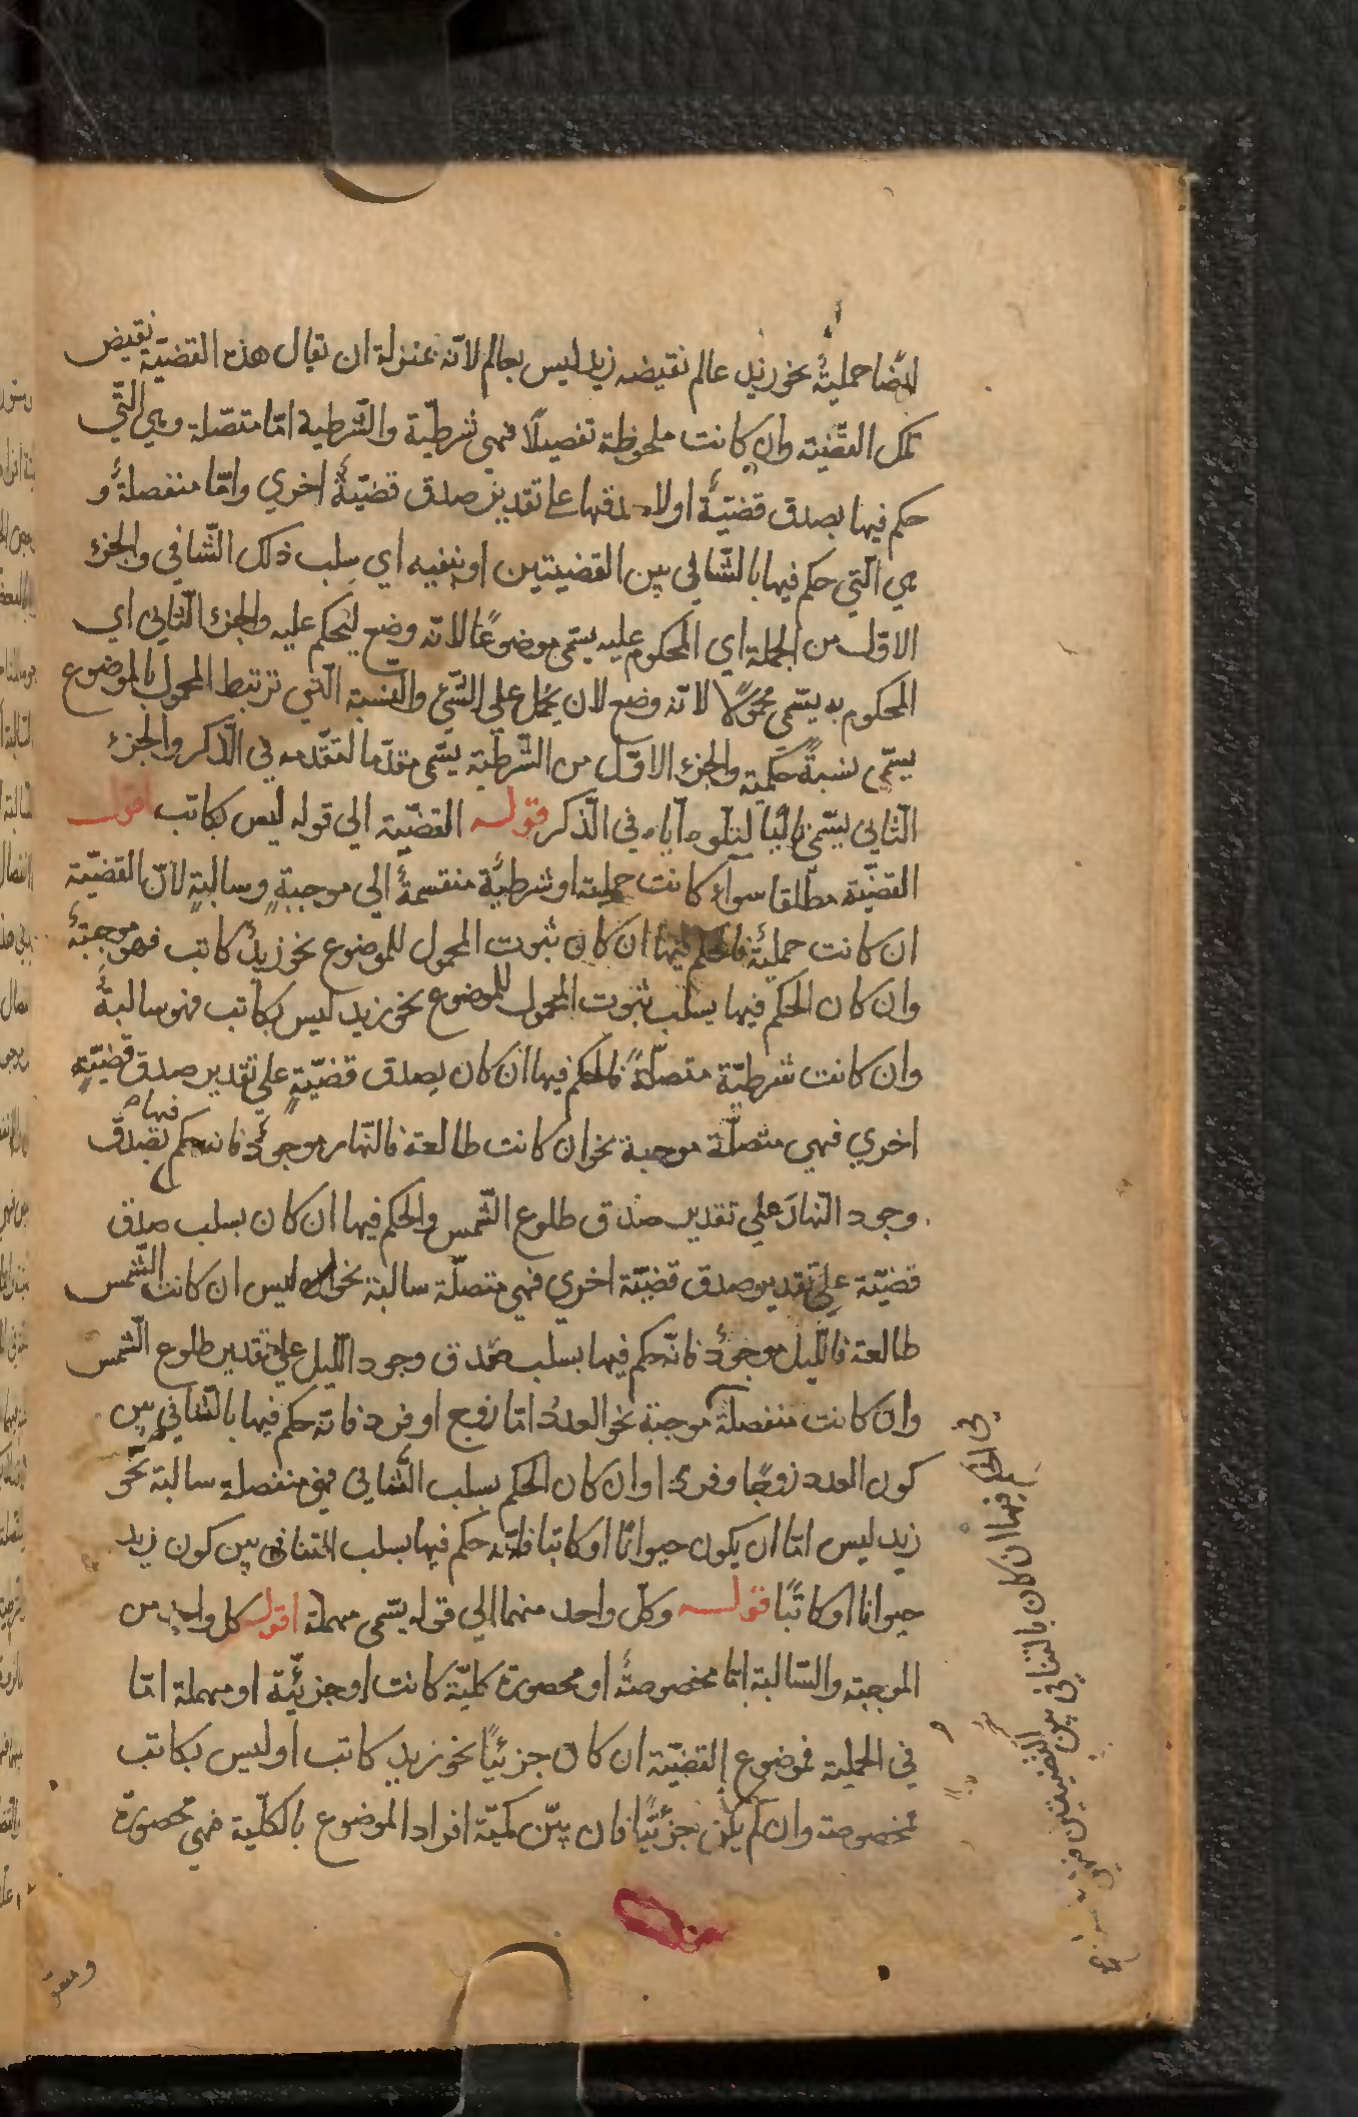 ايضًا حمليةٌ نحو زيد عالم نقيضه زيد ليس بعالم لانّه بمنزلة ان يقال هذه القضيّة نقيض
تلك القضيّة وان كانت ملحوظة تفصيلًا فهي شرطيّة والشّرطية امّا متصّلة وهي الّتي
حكم فيها بصدق قضيّةٌ اولا صدقها على تقدير صدق قضيّةٌ اخري وامّا منفصلةٌ و
هي الّتي حكم فيها بالتّنافي بين القضيتين او بنفيه اي سلب ذلك التّنافي والجزء
الاوّل من الجملة اي المحكوم عليه يسمّي موضوعًا لانّه وضع ليحكم عليه والجزء الثّاني اي
المحكوم به يسمّي محمولًا لانّه وضع لان يحمل علي الشّئ والنسبة الّتي ترتبط المحمول بالموضوع
يسمّي نسبةً حكميّة والجزء الاوّل من الشّرطيّة يسمّي مقدّما لتقدّمه في الذّكر والجزء
الثّاني يسمّي تاليًا لتلوه ايّاه في الذّكر قوله القضيّة الي قوله ليس بكاتب اقول
القضيّة مطّلقا سواء كانت حملية او شرطيّة منقسمةٌ الي موجبةٍ وسالبةٍ لانّ القضيّة
ان كانت حمليّة فالحكم فيها ان كان ثبوت المحمول للموضوع نحو زيدٌ كاتب فهو موجبةٌ
وان كان الحكم فيها بسلب ثبوت المحمول للموضوع نحو زيد ليس بكاتب فهو سالبةٌ
وان كانت شرطيّة متصلّةً فالحكم فيها ان كان بصدق قضيّةٍ علي تقدير صدق قضيّةٍ
اخري فهي متصلّة موجبة نحو ان كانت طالعة فالنّهار موجودٌ فانه حكم فيها بصدق
وجود النّهار علي تقدير صدق طلوع الشّمس والحكم فيها ان كان بسلب صدق
قضيّة علي تقدير صدق قضيّة اخري فهي متصلّة سالبة نحو ليس ان كانت الشّمس
طالعة فاللّيل موجودٌ فانّه حكم فيها بسلب صدق وجود اللّيل علي تقدير طلوع الشّمس
وان كانت منفصلة موجبة نحو العددُ امّا زوج او فرد فانّه حكم فيها بالتّنافي بين
كون العدد زوجًا وفردًا وان كان الحكم بسلب التّنافي فهي منفصلة سالبة نحو
زيد ليس امّا ان يكون حيوانًا او كاتبا فانّه حكم فيها بسلب التنافي بين كون زيد
حيوانا او كاتبًا قوله وكلّ واحد منهما الي قوله يسمّي مهملة اقول كل واحد من
الموجبة والسّالبة امّا مخصوصةٌ او محصورة كليّة كانت او جزئيّة او مهملة امّا
في الحملية فموضوع القضيّة ان كان جزئيًا نحو زيد كاتب او ليس بكاتب
مخصوصة وان لم يكن جزئيًّا فان بيّن كميّة افراد الموضوع بالكلّية فهي محصورة
الحكم فيها ان كان بالتنافي بين القضيتين